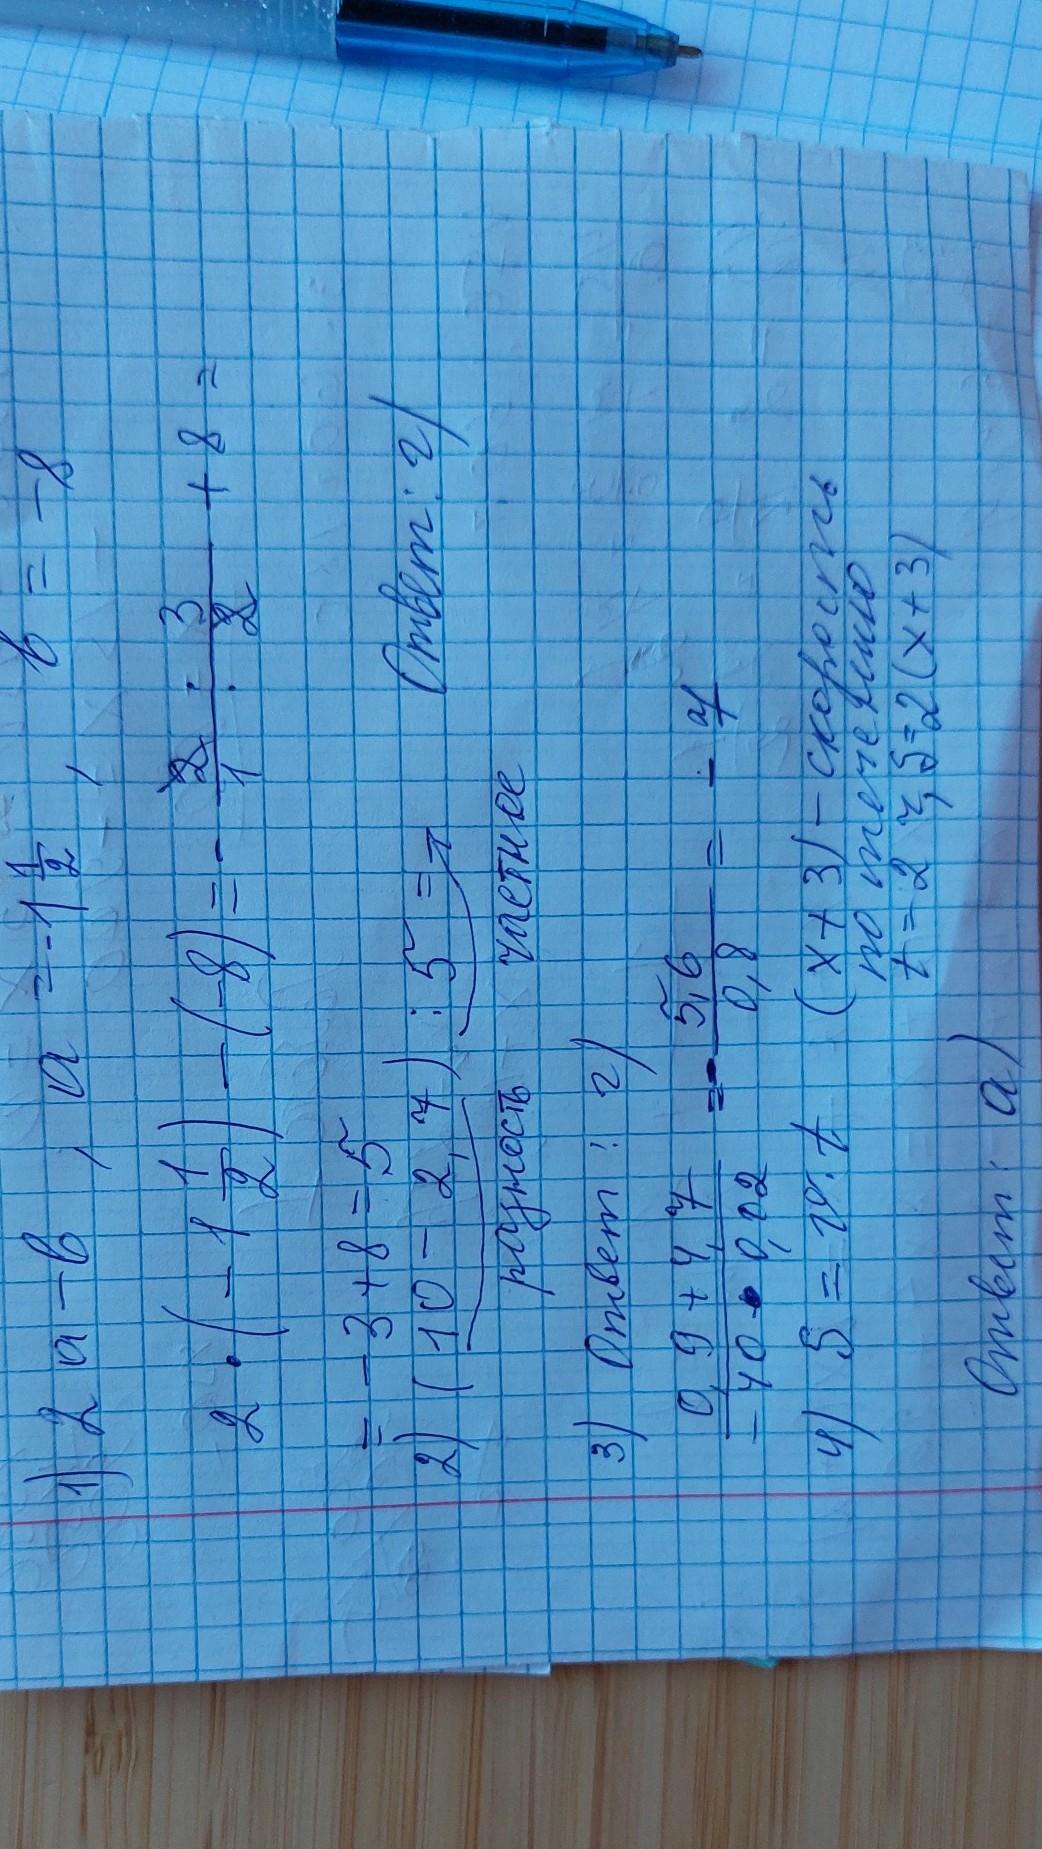 1) 2a - b , a = -1 1/2 , b = -8
2 · (-1 1/2) - (-8) = - 2/1 · 3/2 + 8 =
= -3 + 8 = 5
2) (10 - 2,7) : 5 = Ответ: г)
разность частное
3) Ответ: г)
(0,9 + 4,7)/(-40 · 0,02) = - 5,6/0,8 = - 7
4) S = v · t (x + 3) - скорость
по течению
t = 2 ч, S = 2(x + 3)
Ответ: а)